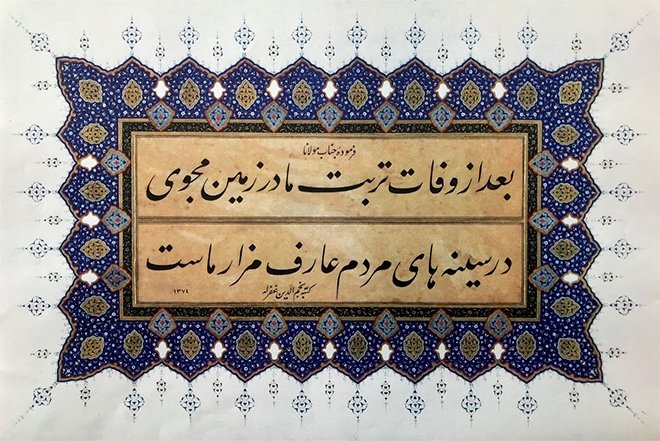 فرموده جناب مولانا
بعد از وفات تربت ما در زمین مجوی
در سینه های مردم عارف مزار ماست
کتبه نجم الدین غفرله
۱۳۷۴